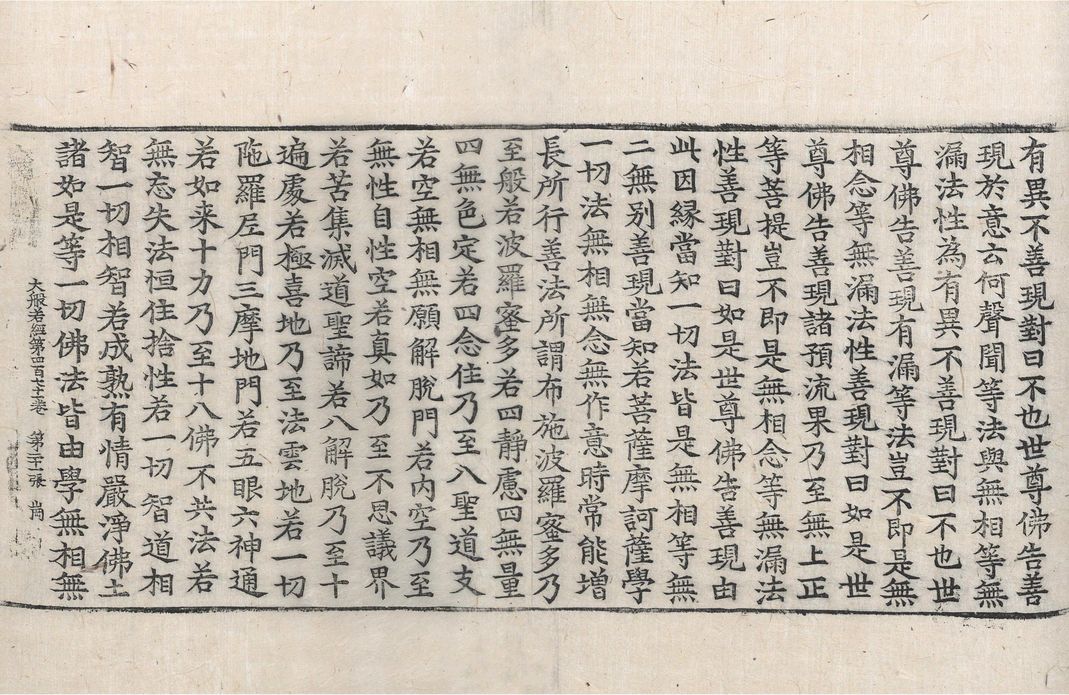 有異不善現對曰不也世尊佛告善
現於意云何聲聞等法與無相等無
漏法性為有異不善現對曰不也世
尊佛告善現有漏等法豈不即是無
相念等無漏法性善現對曰如是世
尊佛告善現諸預流果乃至無上正
等菩提豈不即是無相念等無漏法
性善現對曰如是世尊佛告善現由
此因緣當知一切法皆是無相等無
二無別善現當知若菩薩摩訶薩學
一切法無相無念無作意時常能增
長所行善法所謂布施波羅蜜多乃
至般若波羅蜜多若四靜慮四無量
四無色定若四念住乃至八聖道支
若空無相無願解脫門若內空乃至
無性自性空若真如乃至不思議界
若苦集滅道聖諦若八解脫乃至十
遍處若極喜地乃至法雲地若一切
陁羅尼門三摩地門若五眼六神通
若如来十力乃至十八佛不共法若
無忘失法恒住捨性若一切智道相
智一切相智若成熟有情嚴淨佛土
諸如是等一切佛法皆由學無相無
大般若經第四百七十卷 第二十一張 尚